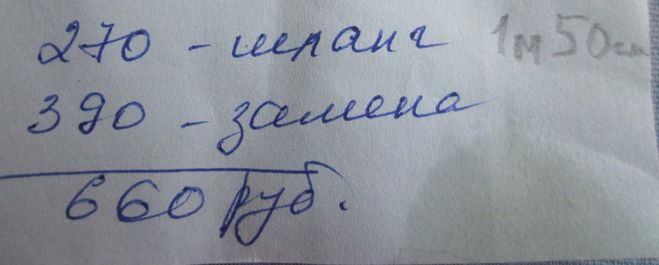 270 - шланг 1м50см
390 - замена
660 руб.